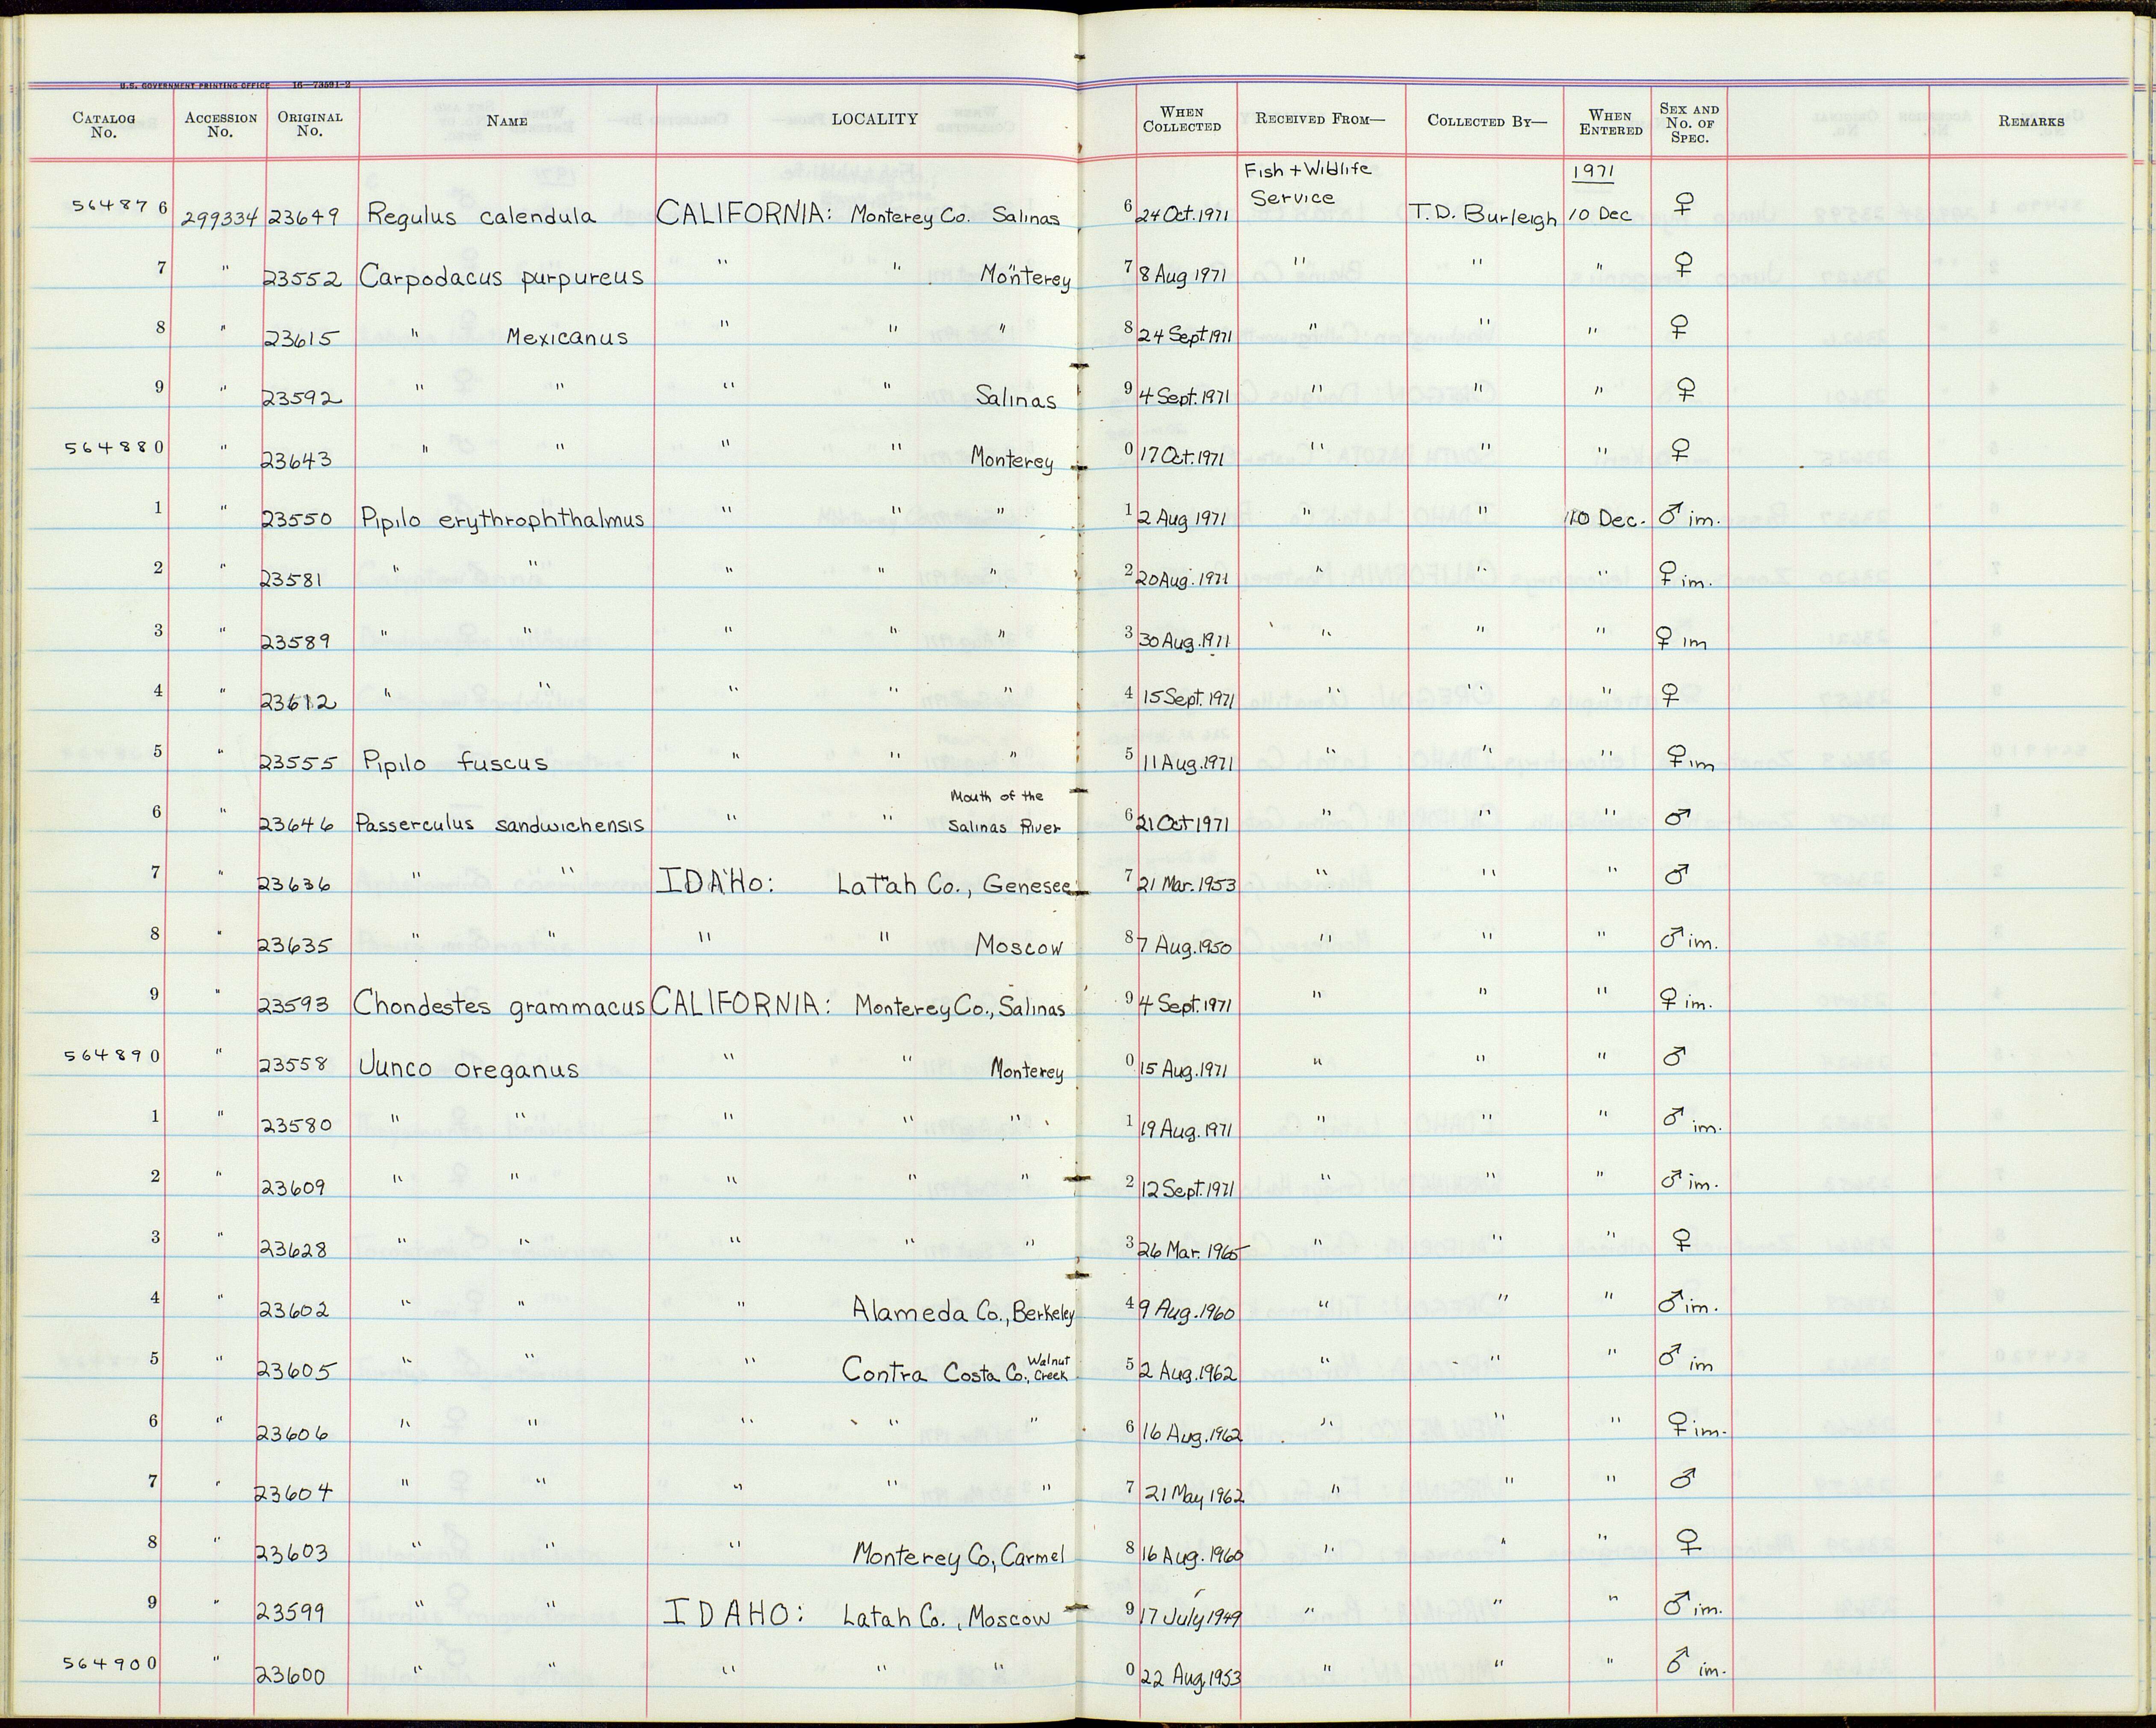 U.S. GOVERNMENT PRINTING OFFICE 16—73591-2
CATALOG No. ACCESSION No. ORIGINAL No. NAME LOCALITY WHEN COLLECTED RECEIVED FROM— COLLECTED BY— WHEN ENTERED SEX AND No. OF SPEC. REMARKS
Fish + Wildlife 1971
564876 299334 23649 Regulus calendula CALIFORNIA: Monterey Co. Salinas 6 24 Oct. 1971 Service T.D. Burleigh 10 Dec ♀
7 " 23552 Carpodacus purpureus " " Monterey 7 8 Aug 1971 " " " ♀
8 " 23615 " Mexicanus " " " 8 24 Sept 1971 " " " ♀
9 " 23592 " " " " Salinas 9 4 Sept. 1971 " " " ♀
564880 " 23643 " " " " Monterey 0 17 Oct. 1971 " " " ♀
1 " 23550 Pipilo erythrophthalmus " " " 1 2 Aug 1971 " " 10 Dec. ♂ im.
2 " 23581 " " " " " 2 20 Aug. 1971 " " " ♀ im.
3 " 23589 " " " " " 3 30 Aug. 1971 " " " ♀ im
4 " 23612 " " " " " 4 15 Sept. 1971 " " " ♀
5 " 23555 Pipilo fuscus " " " 5 11 Aug. 1971 " " " ♀ im
Mouth of the
6 " 23646 Passerculus sandwichensis " " Salinas River 6 21 Oct 1971 " " " ♂
7 " 23636 " " IDAHO: Latah Co., Genesee 7 21 Mar. 1953 " " " ♂
8 " 23635 " " " " Moscow 8 7 Aug. 1950 " " " ♂ im.
9 " 23593 Chondestes grammacus CALIFORNIA: Monterey Co., Salinas 9 4 Sept. 1971 " " " ♀ im.
564890 " 23558 Junco oreganus " " Monterey 0 15 Aug. 1971 " " " ♂
1 " 23580 " " " " " 1 19 Aug. 1971 " " " ♂ im.
2 " 23609 " " " " " 2 12 Sept. 1971 " " " ♂ im.
3 " 23628 " " " " " 3 26 Mar. 1965 " " " ♀
4 " 23602 " " " Alameda Co., Berkeley 4 9 Aug. 1960 " " " ♂ im.
5 " 23605 " " " Contra Costa Co., Walnut Creek 5 2 Aug. 1962 " " " ♂ im
6 " 23606 " " " " " 6 16 Aug. 1962 " " " ♀ im.
7 " 23604 " " " " " 7 21 May 1962 " " " ♂
8 " 23603 " " " Monterey Co, Carmel 8 16 Aug. 1960 " " " ♀
9 " 23599 " " IDAHO: Latah Co., Moscow 9 17 July 1949 " " " ♂ im.
564900 " 23600 " " " " " 0 22 Aug 1953 " " " ♂ im.